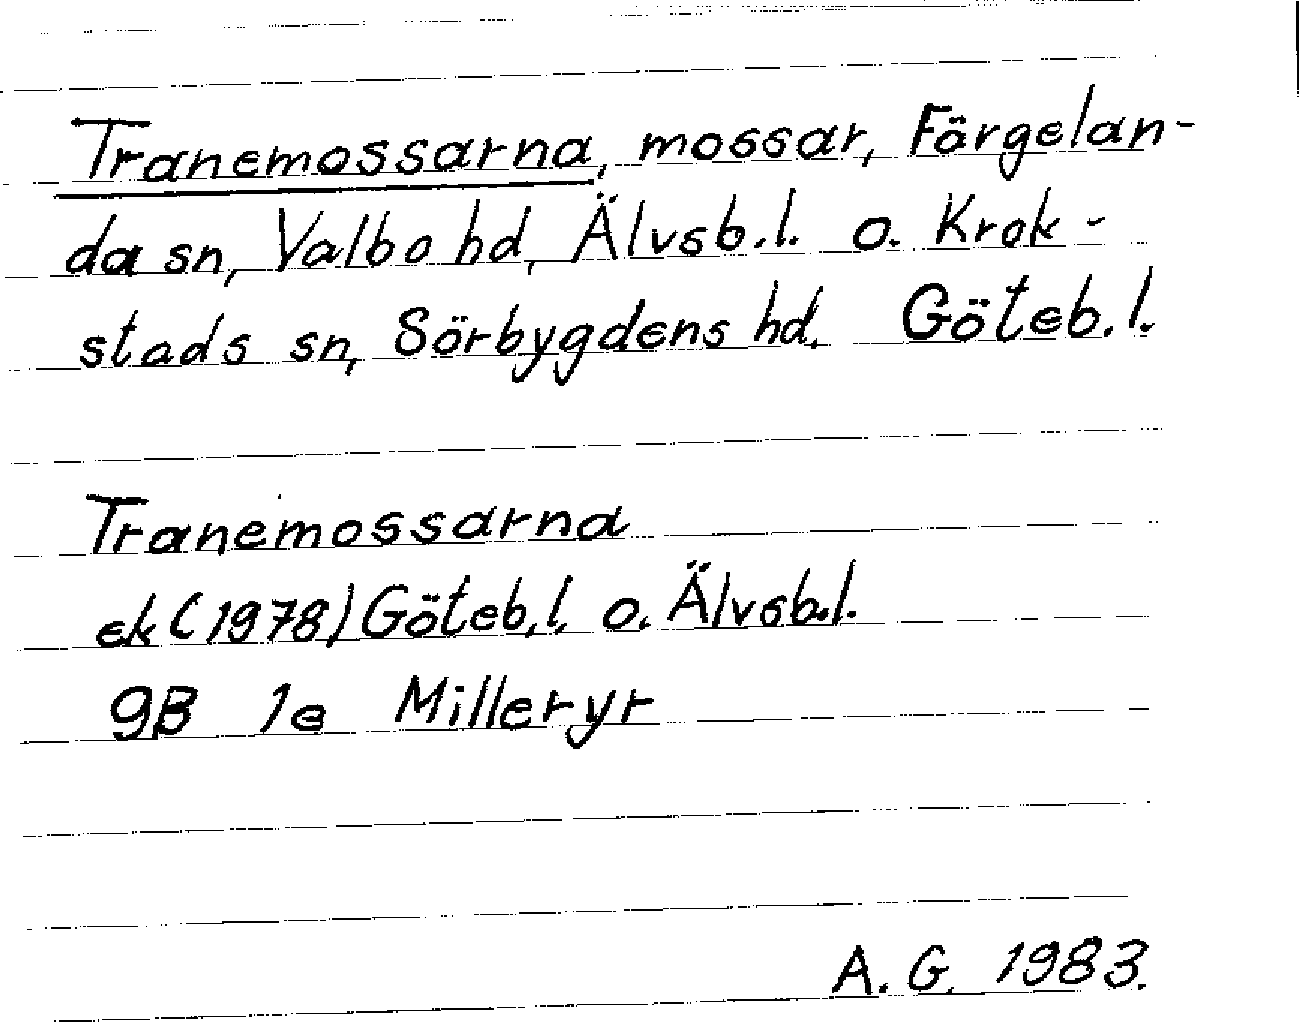 Tranemossarna, mossar, Färgelan-
da sn, Valbo hd, Älvsb.l. o. Krok-
stads sn, Sörbygdens hd. Göteb.l.
Tranemossarna
ek (1978) Göteb.l. o. Älvsb.l.
9B 1e Milleryr
A. G. 1983.